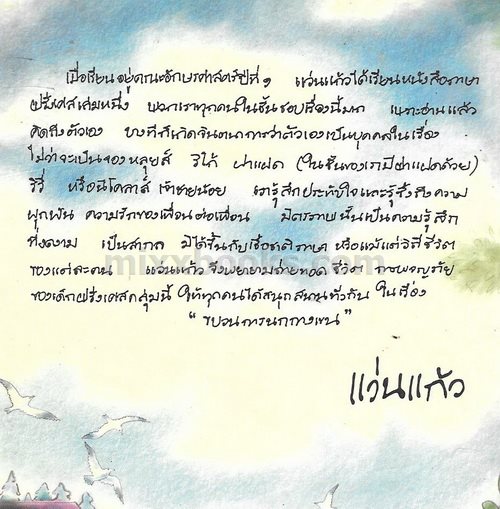 เมื่อเรียนอยู่คณะอักษรศาสตร์ปีที่ ๑ แว่นแก้วได้เรียนหนังสือภาษา
ฝรั่งเศสเล่มหนึ่ง พวกเราทุกคนในชั้นชอบเรื่องนี้มาก เพราะอ่านแล้ว
คิดถึงตัวเอง บางทีก็เกิดจินตนาการว่าตัวเองเป็นบุคคลในเรื่อง
ไม่ว่าจะเป็นจองหลุยส์ ริโก้ ฝาแฝด (ในชั้นของเรามีฝาแฝดด้วย)
รีรี่ หรือนิโคลาส์ เจ้าชายน้อย เรารู้สึกประทับใจและรู้ซึ้งถึงความ
ผูกพัน ความรักของเพื่อนต่อเพื่อน มิตรภาพนั้นเป็นความรู้สึก
ที่งดงาม เป็นสากล มิได้ขึ้นกับเชื้อชาติภาษา หรือแม้แต่วิถีชีวิต
ของแต่ละคน แว่นแก้วจึงพยายามถ่ายทอดชีวิต การผจญภัย
ของเด็กฝรั่งเศสกลุ่มนี้ ให้ทุกคนได้สนุกสนานทั่วกัน ในเรื่อง
" ขบวนการนกกางเขน "
แว่นแก้ว
mixxbooks.com